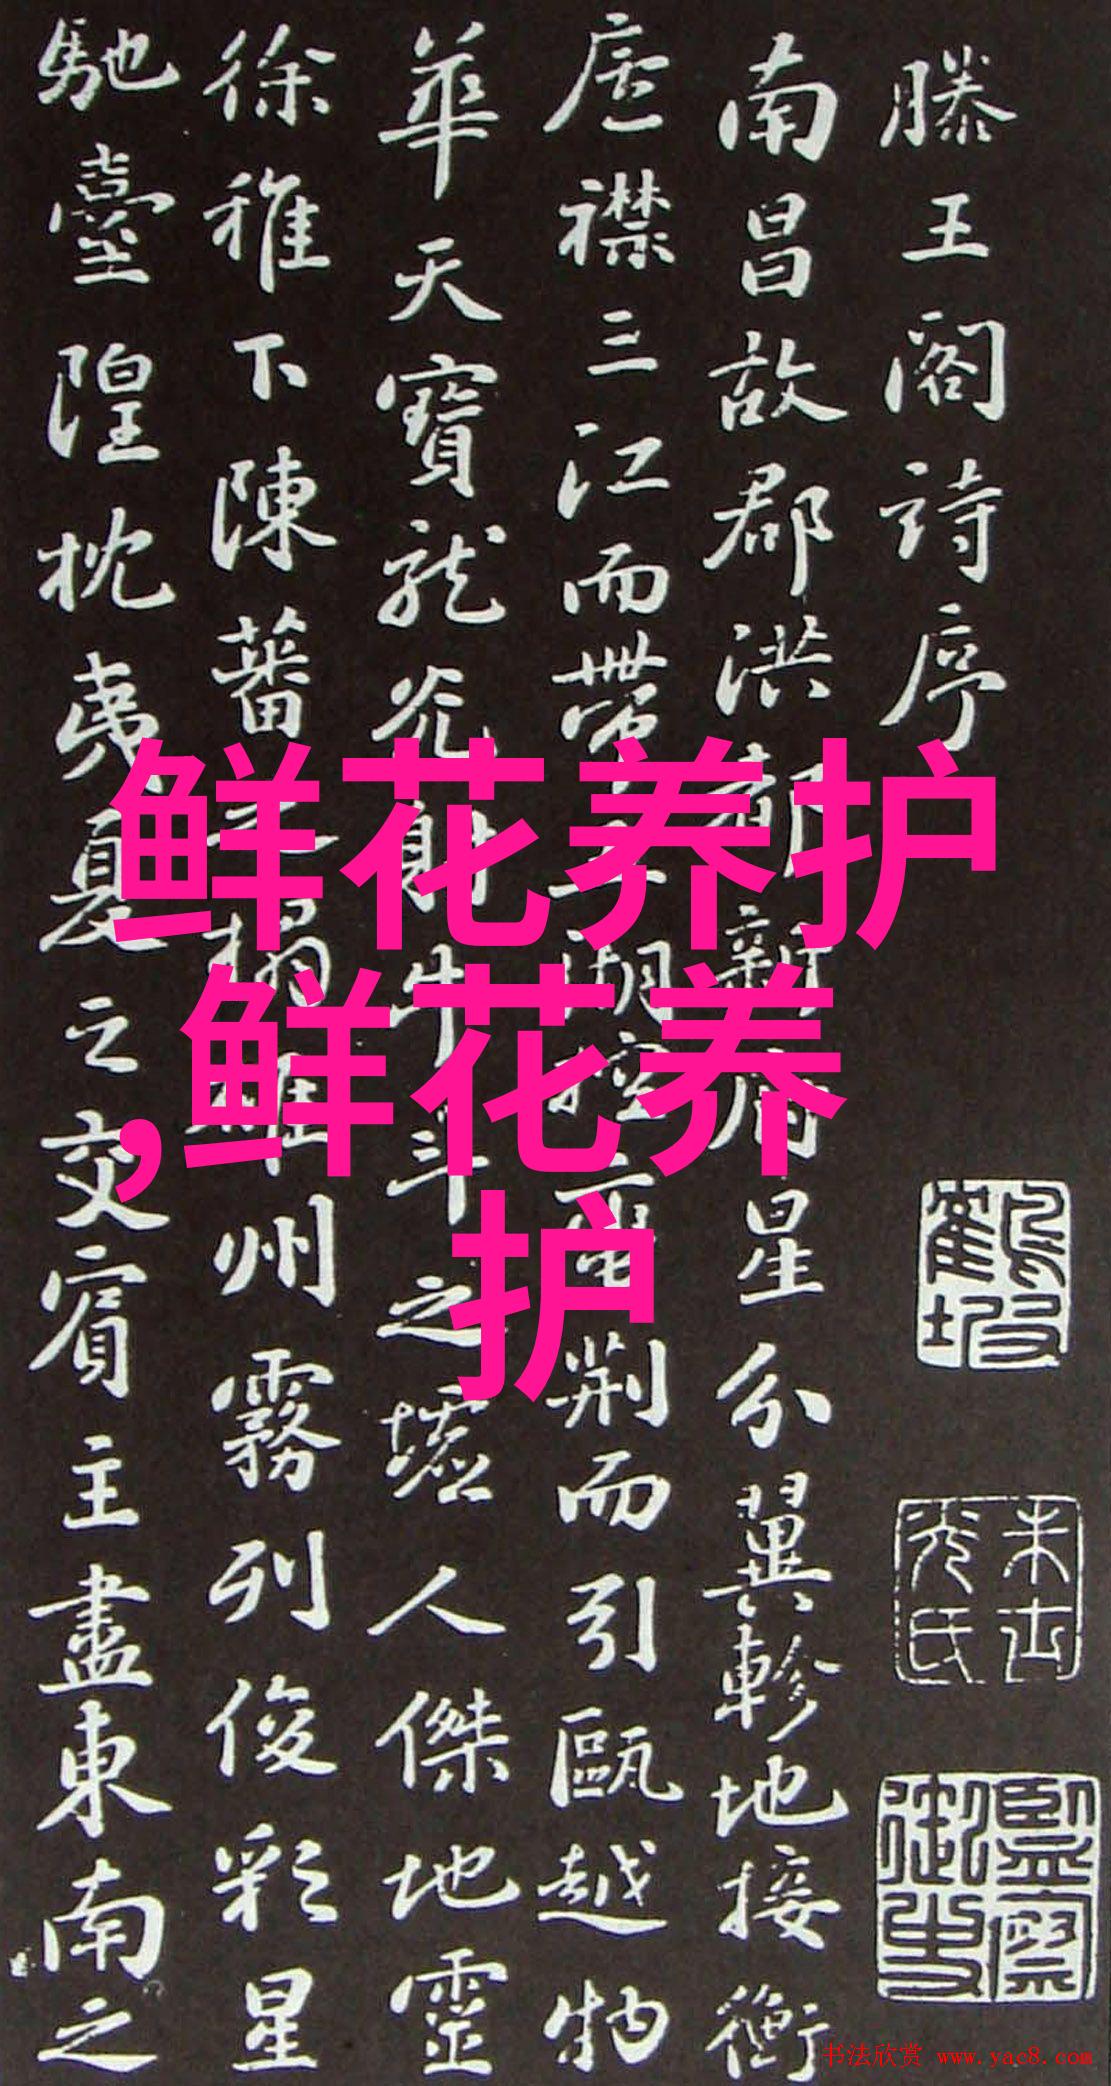 滕王阁詩序
南昌故郡洪都新府星分翼軫地接衡
廬襟三江而帶五湖控蠻荆而引甌越物
華天寶龍光射牛斗之墟人傑地靈
徐稚下陳蕃之榻雄州霧列俊彩星
馳臺隍枕夷夏之交賓主盡東南之
鲜花养护
,鲜花养
护
书法欣赏 www.yac8.com